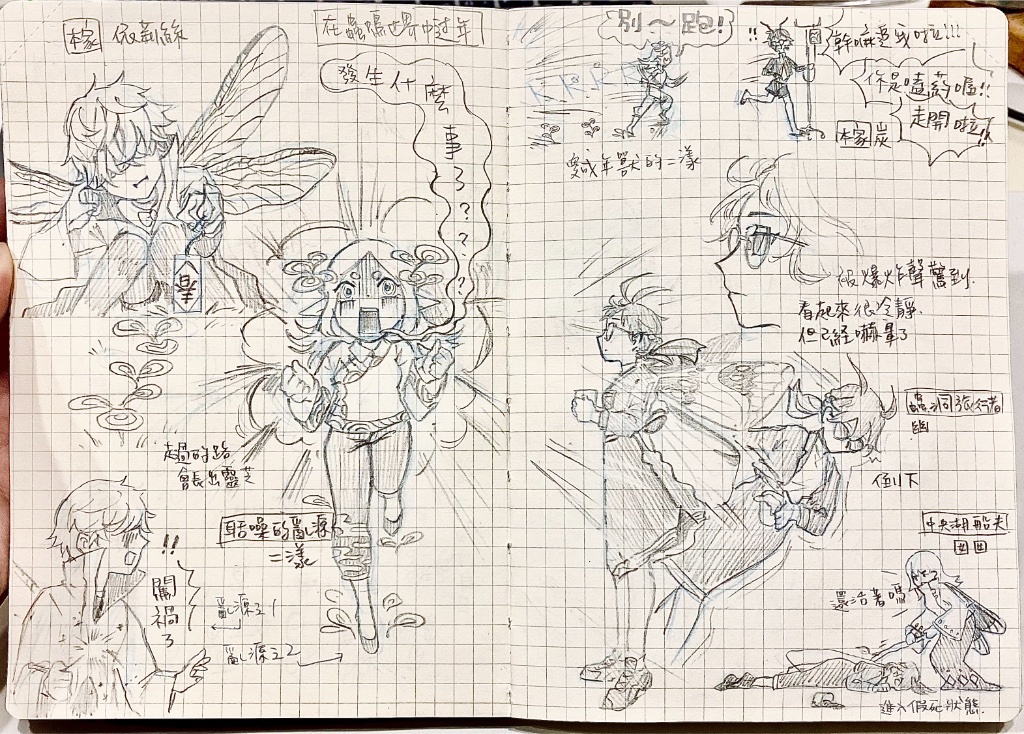 本家 依莉絲
在蟲鳴世界中过年
發生什麼事了???
春
走過的路
會長出靈芝
聒噪的亂源
二漾
!!
闖禍了
亂源主1
亂源主2
別～跑!
!!
幹嘛變我啦!!!
你是嗑药喔!!
走開啦!!
本家 炭
變成年獸的二漾
被爆炸聲驚到.
看起來很冷靜.
但已經嚇暈了
蟲洞旅行者
幽
倒下
中央湖船夫
囬囬
還活著嗎
進入假死狀態.